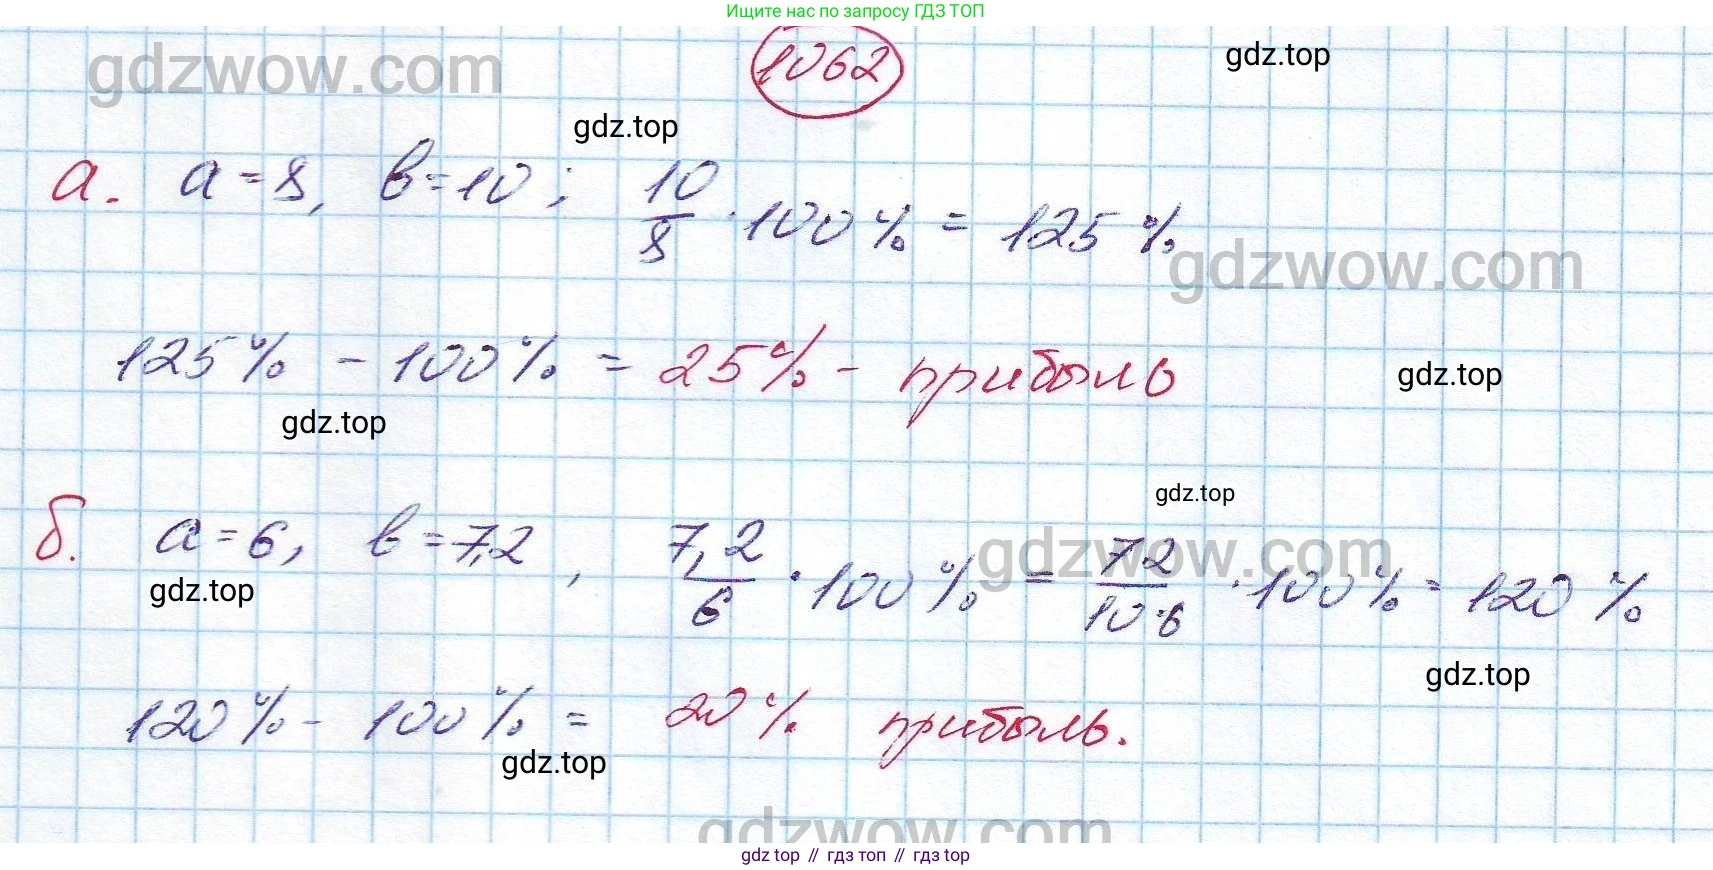 Ищите нас по запросу ГДЗ ТОП
gdzwow.com
1062
gdz.top
gdz.top
а. a=8, b=10; 10/8 · 100% = 125%
gdzwow.com
125% - 100% = 25% - прибыль
gdz.top
gdz.top
gdz.top
б. a=6, b=7,2, 7,2/6 · 100% = 72/10·6 · 100% = 120%
gdzwow.com
gdz.top
gdz.top
120% - 100% = 20% прибыль.
gdz.top
gdzwow.com
gdz top // гдз топ // gdz top